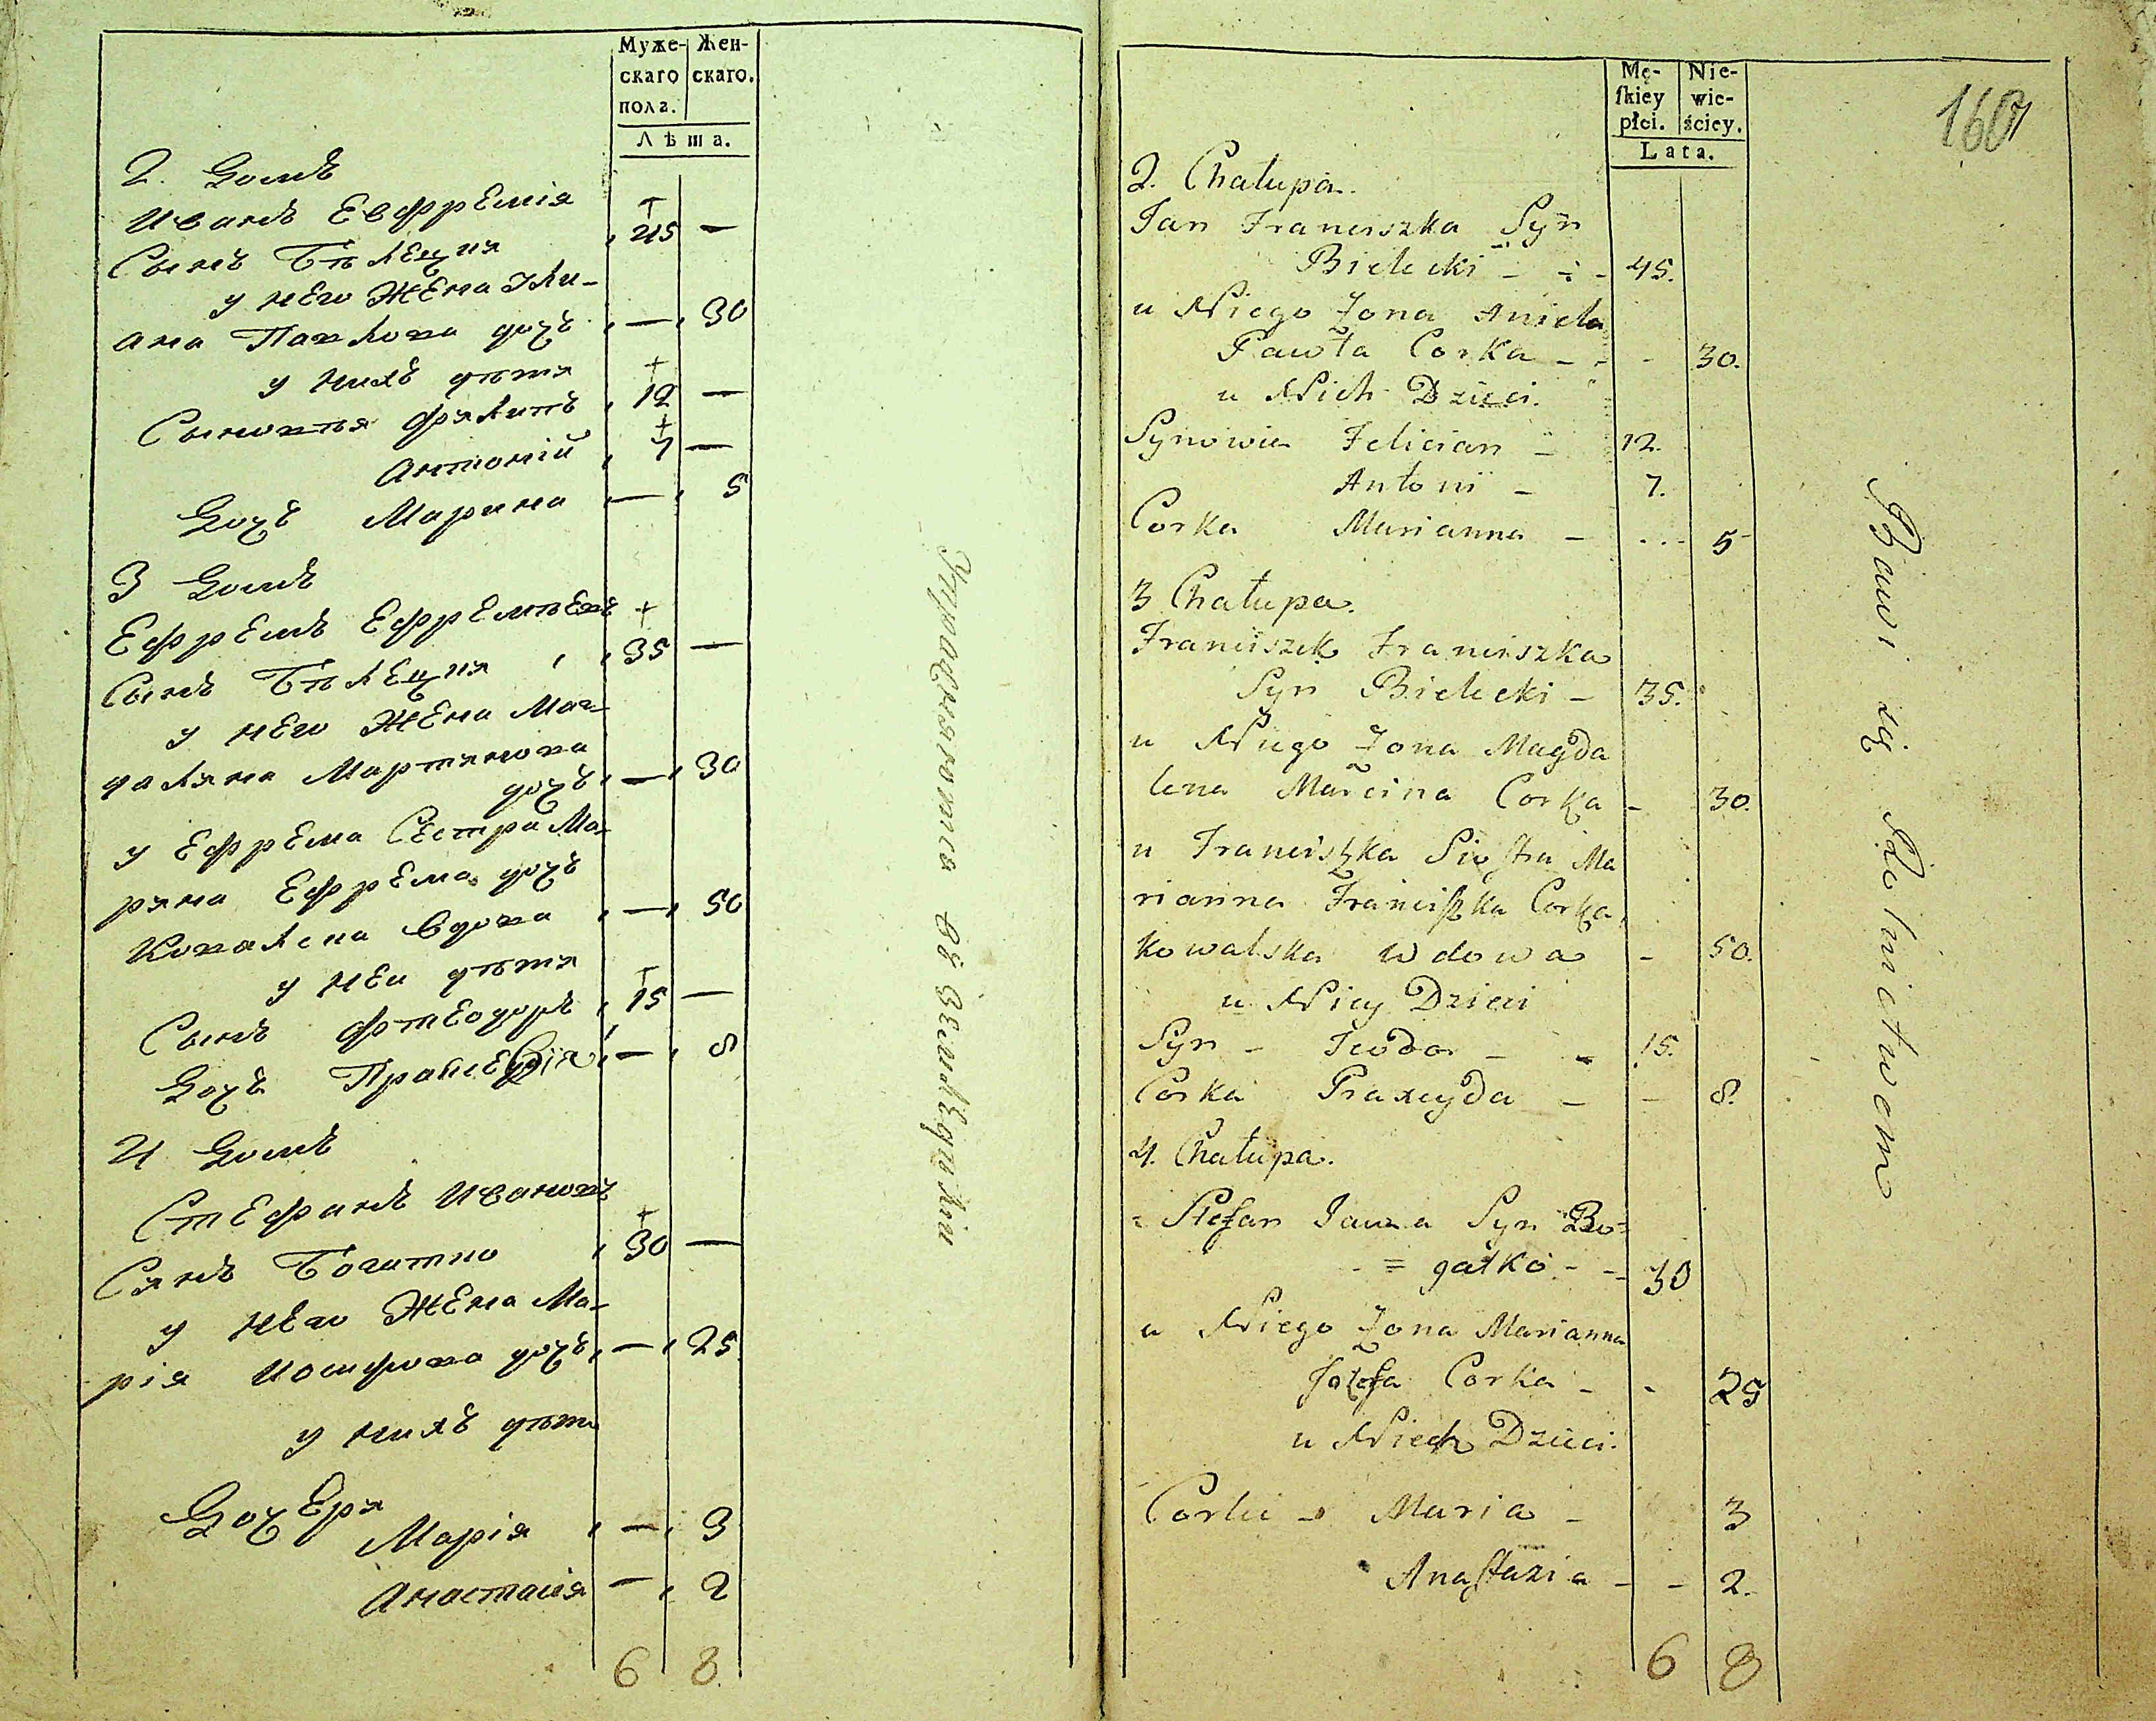 Муже- Жен-
скаго скаго.
пола.
Лѣта.
2. Домъ
Иванъ Евфремія
Сынъ Бѣлецкя 45 —
у него Жена Юли-
ана Павлова дочь — 30
у нихъ дѣтя
Сыновья Фялипъ 12 —
Антоній 7 —
Дочь Марина — 5
3 Домъ
Ефремъ Ефремѣевъ
Сынъ Бѣлецкя 35 —
у него Жена Маг-
даляна Мартянова
дочь — 30
у Ефрема Сестра Ма-
ряна Ефрема дочь
Ковалска вдова — 50
у неи дѣтя
Сынъ Фтеодоръ 15 —
Дочь Пракседія — 8
4 Домъ
Стефанъ Ивановъ
Сянъ Богатко 30 —
у него Жена Ма-
рія Иосифова дочь — 25
у нихъ дѣти
Дочеря
Марія — 3
Анастасія — 2
6 8
Упражняются въ Земледѣліи
160
Mę- Nie-
ſkiey wie-
płci. ściey.
Lata.
2. Chałupa.
Jan Franciszka Syn
Bielecki - - 45.
u Niego Żona Aniela
Pawła Corka - - 30.
u Nich Dzieci.
Synowie Felician - 12.
Antoni - 7.
Corka Marianna - ... 5
3 Chałupa.
Franciszek Franciszka
Syn Bielecki - 35.
u Niego Żona Magda
lena Marcina Corka - 30.
u Franciszka Siostra Ma
rianna Franciszka Corka
Kowalska Wdowa - 50.
u Niey Dzieci
Syn - Teodor - - 15.
Corka Praxeyda - - 8.
4. Chałupa.
Stefan Jana Syn Bo=
= gatko - - 30
u Niego Żona Marianna
Jozefa Corka - - 25
u Niech Dzieci.
Corki - Maria - 3
Anastazia - - 2.
6 8
Bawi się Rolnictwem